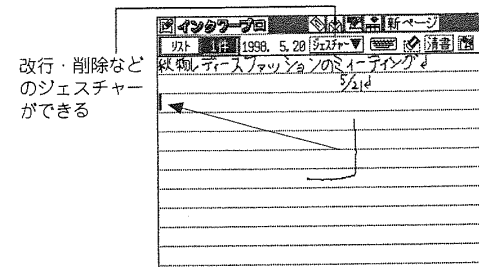 改行・削除など
のジェスチャー
ができる
インクワープロ 新ページ
リスト 1件 1998. 5.20 ジェスチャー▼ 清書
秋物レディースファッションのミーティング↲
5/21↲